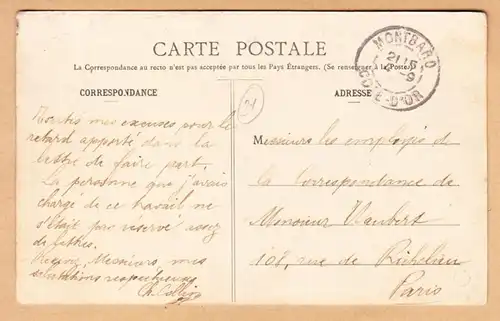 CARTE POSTALE
La Correspondance au recto n'est pas acceptée par tous les Pays Étrangers. (Se renseigner à la Poste.)
CORRESPONDANCE
ADRESSE
21
MONTBARD
CÔTE-D'OR
Toutes mes excuses pour le
retard apporté dans la
lettre de faire part.
La personne que j'avais
chargé de ce travail ne
s'était pas réservé assez
de lettres.
Recevez Messieurs, mes
salutations respectueuses
Messieurs les employés de
la Correspondance de
Monsieur Vaubert
108, rue de Richelieu
Paris